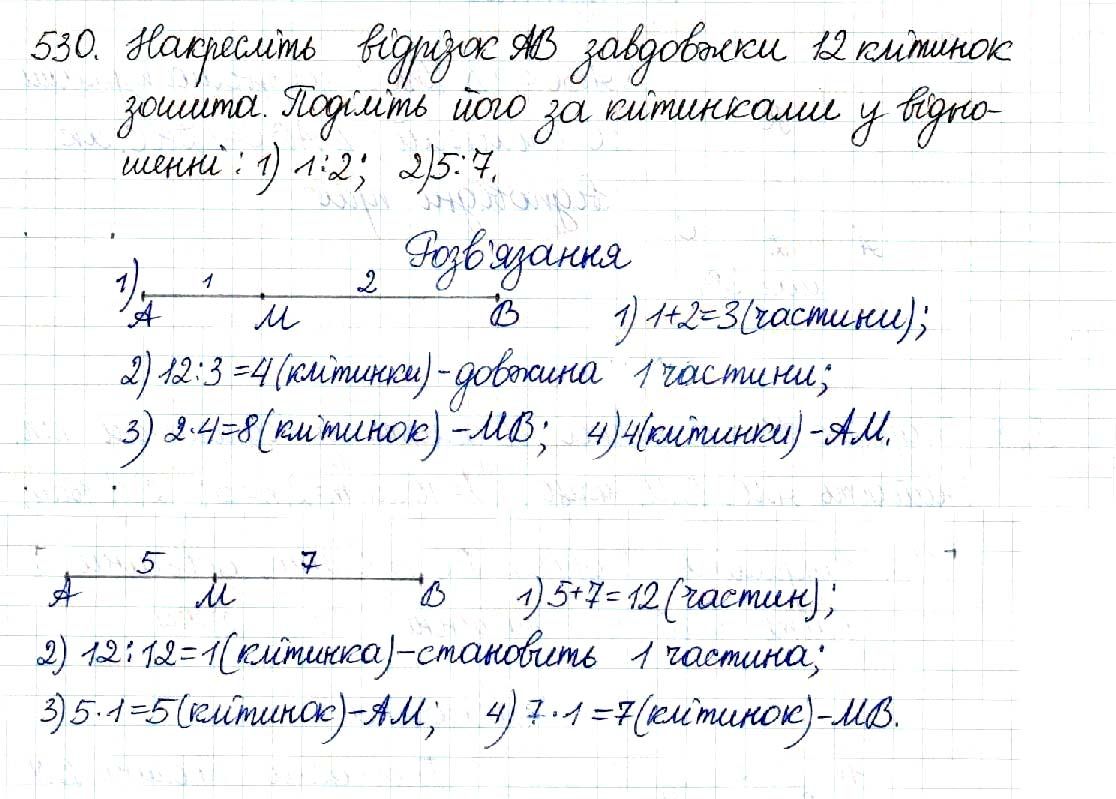 530. Накресліть відрізок АВ завдовжки 12 клітинок
зошита. Поділіть його за клітинками у відно-
шенні: 1) 1:2; 2) 5:7.
Розв'язання
1) 1 2
А М В 1) 1+2=3 (частини);
2) 12:3=4 (клітинки) - довжина 1 частини;
3) 2·4=8 (клітинок) - МВ; 4) 4 (клітинки) - АМ.
5 7
А М В 1) 5+7=12 (частин);
2) 12:12=1 (клітинка) - становить 1 частина;
3) 5·1=5 (клітинок) - АМ; 4) 7·1=7 (клітинок) - МВ.